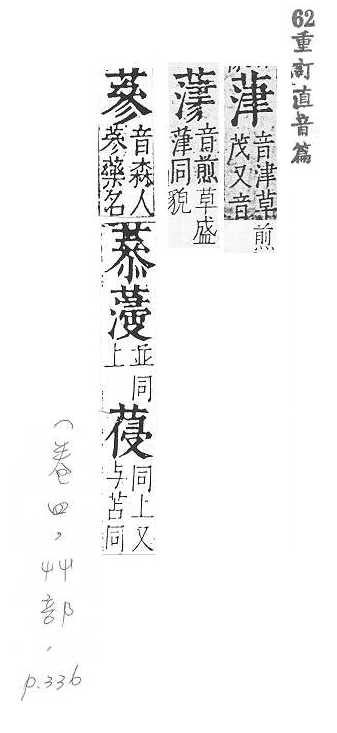 62重訂直音篇
葏 音津草茂又音煎
音煎草盛葏同貌
蔘 音森人蔘藥名
並同上
葠 同上又与苫同
(卷四,艸部,p.336